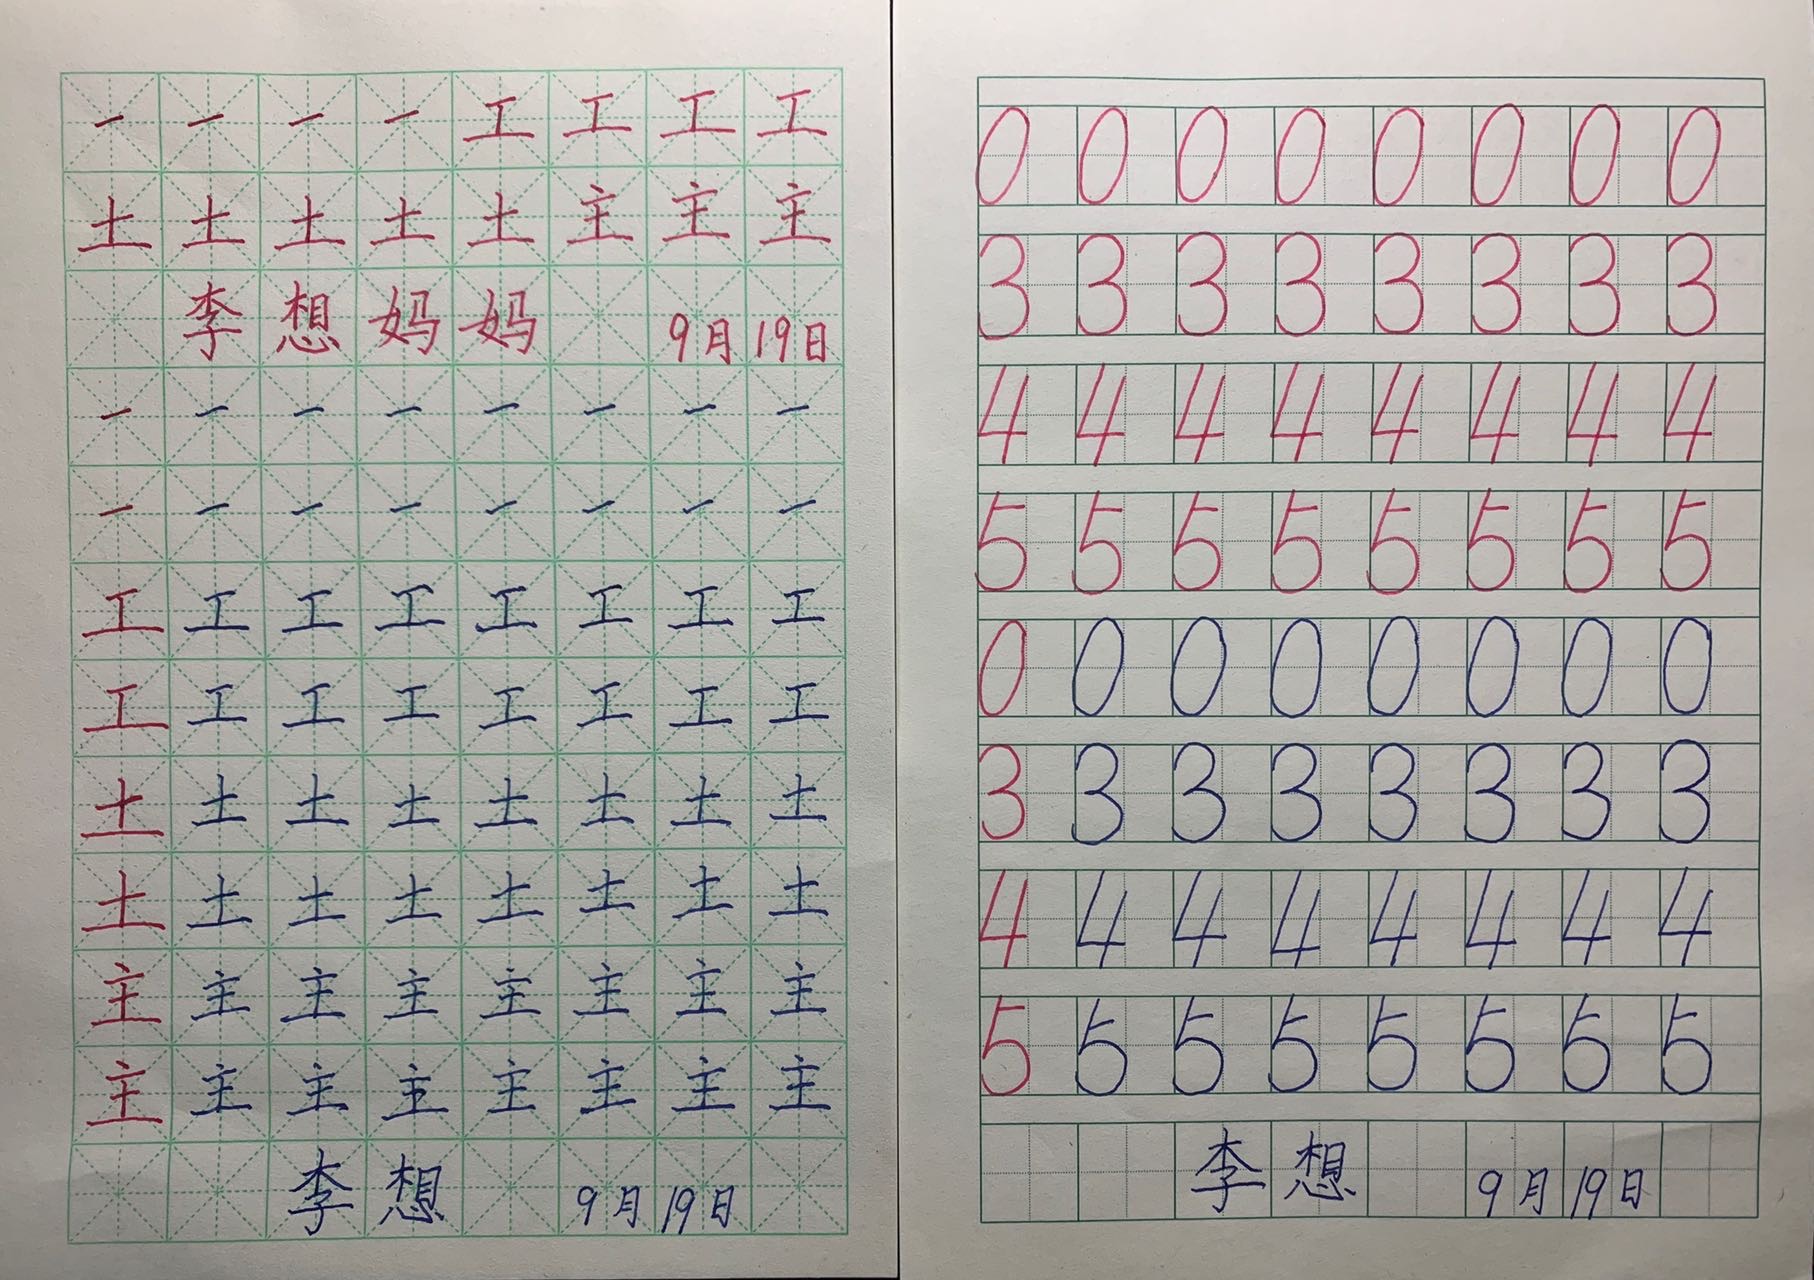 一 一 一 一 工 工 工 工
土 土 土 土 土 主 主 主
李 想 妈 妈 9月 19日
一 一 一 一 一 一 一 一
一 一 一 一 一 一 一 一
工 工 工 工 工 工 工 工
工 工 工 工 工 工 工 工
土 土 土 土 土 土 土 土
土 土 土 土 土 土 土 土
主 主 主 主 主 主 主 主
主 主 主 主 主 主 主 主
李 想 9月 19日
0 0 0 0 0 0 0 0
3 3 3 3 3 3 3 3
4 4 4 4 4 4 4 4
5 5 5 5 5 5 5 5
0 0 0 0 0 0 0 0
3 3 3 3 3 3 3 3
4 4 4 4 4 4 4 4
5 5 5 5 5 5 5 5
李 想 9月 19日